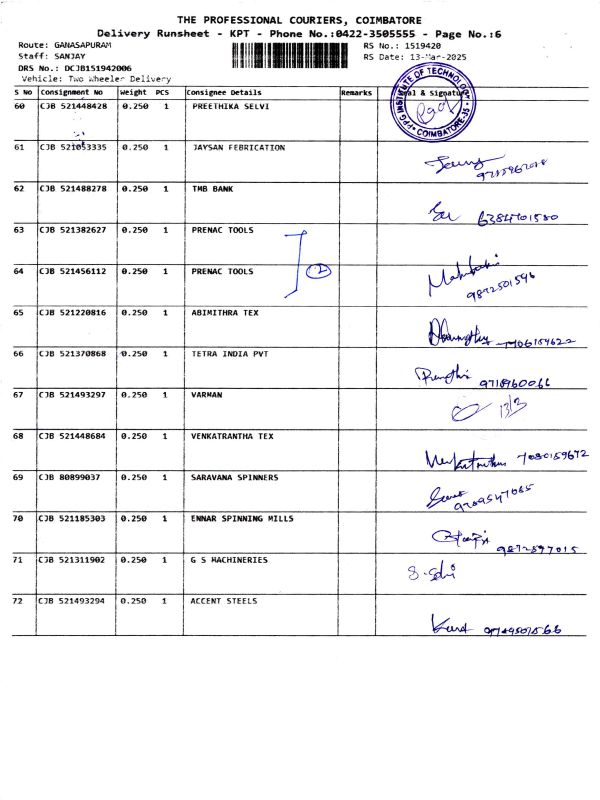 THE PROFESSIONAL COURIERS, COIMBATORE
Delivery Runsheet - KPT - Phone No.:0422-3505555 - Page No.:6
Route: GANASAPURAM RS No.: 1519420
Staff: SANJAY RS Date: 13-Mar-2025
DRS No.: DCJB151942006
Vehicle: Two Wheeler Delivery
S No Consignment No Weight PCS Consignee Details Remarks & Signature
PPG INSTITUTE OF TECHNOLOGY COIMBATORE-35
60 CJB 521448428 0.250 1 PREETHIKA SELVI
61 CJB 521053335 0.250 1 JAYSAN FEBRICATION
62 CJB 521488278 0.250 1 TMB BANK
6384701580
63 CJB 521382627 0.250 1 PRENAC TOOLS
2
64 CJB 521456112 0.250 1 PRENAC TOOLS
9872501596
65 CJB 521220816 0.250 1 ABIMITHRA TEX
66 CJB 521370868 0.250 1 TETRA INDIA PVT
9718960066
67 CJB 521493297 0.250 1 VARMAN
13/3
68 CJB 521448684 0.250 1 VENKATRANTHA TEX
7080159672
69 CJB 80899037 0.250 1 SARAVANA SPINNERS
9209547085
70 CJB 521185303 0.250 1 ENNAR SPINNING MILLS
9872897015
71 CJB 521311902 0.250 1 G S MACHINERIES
72 CJB 521493294 0.250 1 ACCENT STEELS